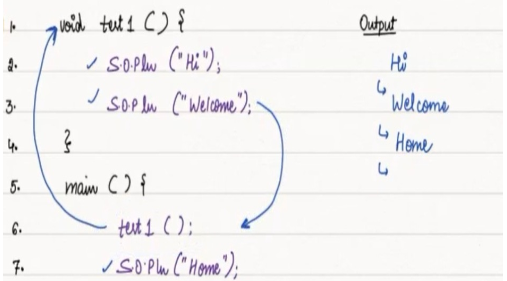 1. void test1 () {
Output
2. ✓ S.O.Pln ("Hi");
Hi
3. ✓ S.O.Pln ("Welcome");
↳ Welcome
4. }
↳ Home
↳
5. main () {
6. test1 ();
7. ✓ S.O.Pln ("Home");